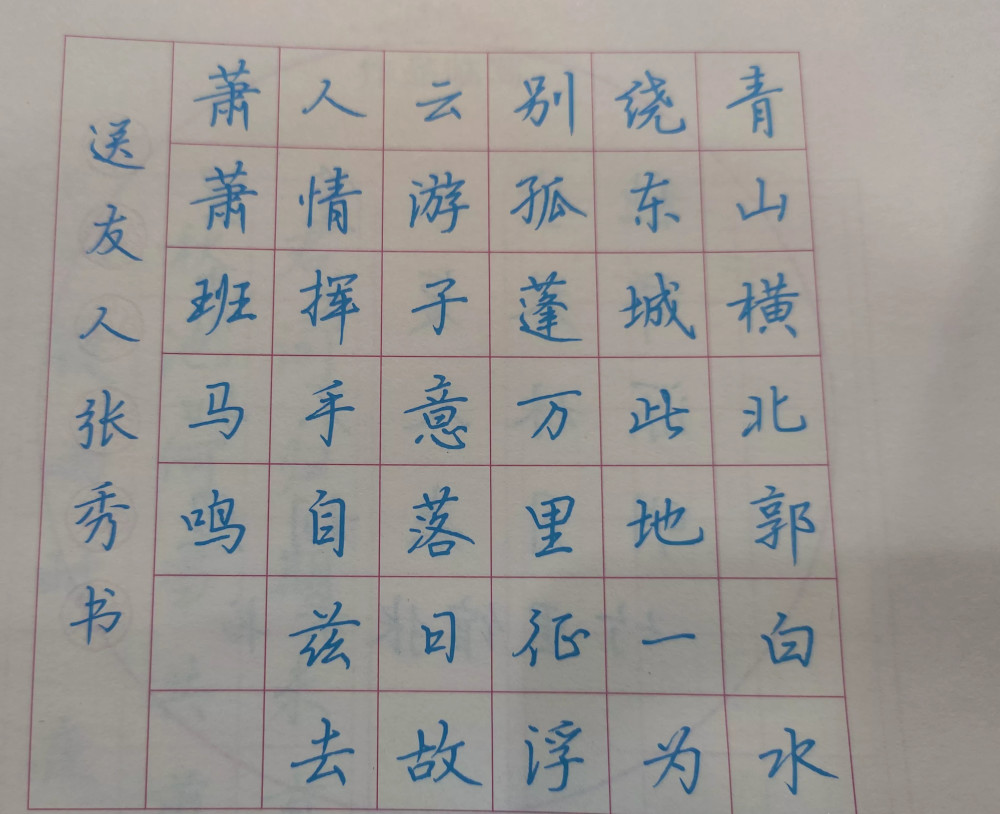 青山横北郭白水
绕东城此地一为
别孤蓬万里征浮
云游子意落日故
人情挥手自兹去
萧萧班马鸣
送友人张秀书